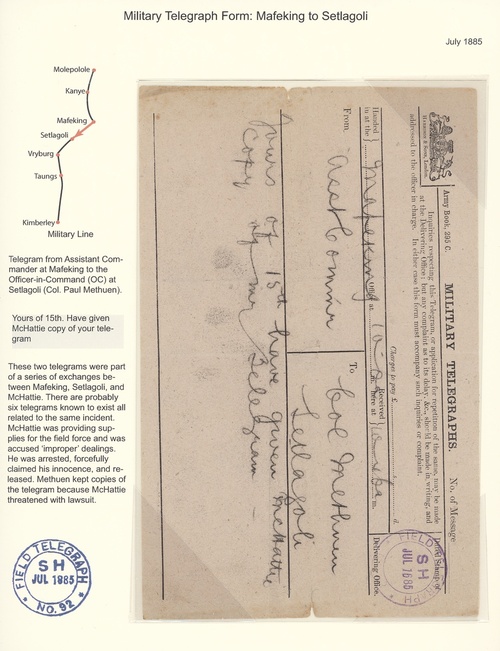 Military Telegraph Form: Mafeking to Setlagoli
July 1885
Molepolole
Kanye
Mafeking
Setlagoli
Vryburg
Taungs
Kimberley
Military Line
Telegram from Assistant Com-
mander at Mafeking to the
Officer-in-Command (OC) at
Setlagoli (Col. Paul Methuen).
Yours of 15th. Have given
McHattie copy of your tele-
gram
These two telegrams were part
of a series of exchanges be-
tween Mafeking, Setlagoli, and
McHattie. There are probably
six telegrams known to exist all
related to the same incident.
McHattie was providing sup-
plies for the field force and was
accused 'improper' dealings.
He was arrested, forcefully
claimed his innocence, and re-
leased. Methuen kept copies of
the telegram because McHattie
threatened with lawsuit.
FIELD TELEGRAPH
SH
JUL 1885
NO. 92
Army Book, 295 C.
MILITARY TELEGRAPHS.
No. of Message
Harrison & Sons, London.
Inquiries respecting this Telegram, or application for repetition of the same, may be made
at the Delivering Office; but any complaint as to its delay, &c., should be made in writing, and
addressed to the officer in charge. In either case this form must accompany such inquiries or complaint.
Dated Stamp of
Charges to pay £
d.
Handed in at the
Mafeking
Office at
Received here at
m.
Delivering Office.
FIELD TELEGRAPH
SH
JUL 1885
From,
Asst Commr
To
Col Methuen
Setlagoli
Yours of 15th have given McHattie
Copy of my telegram